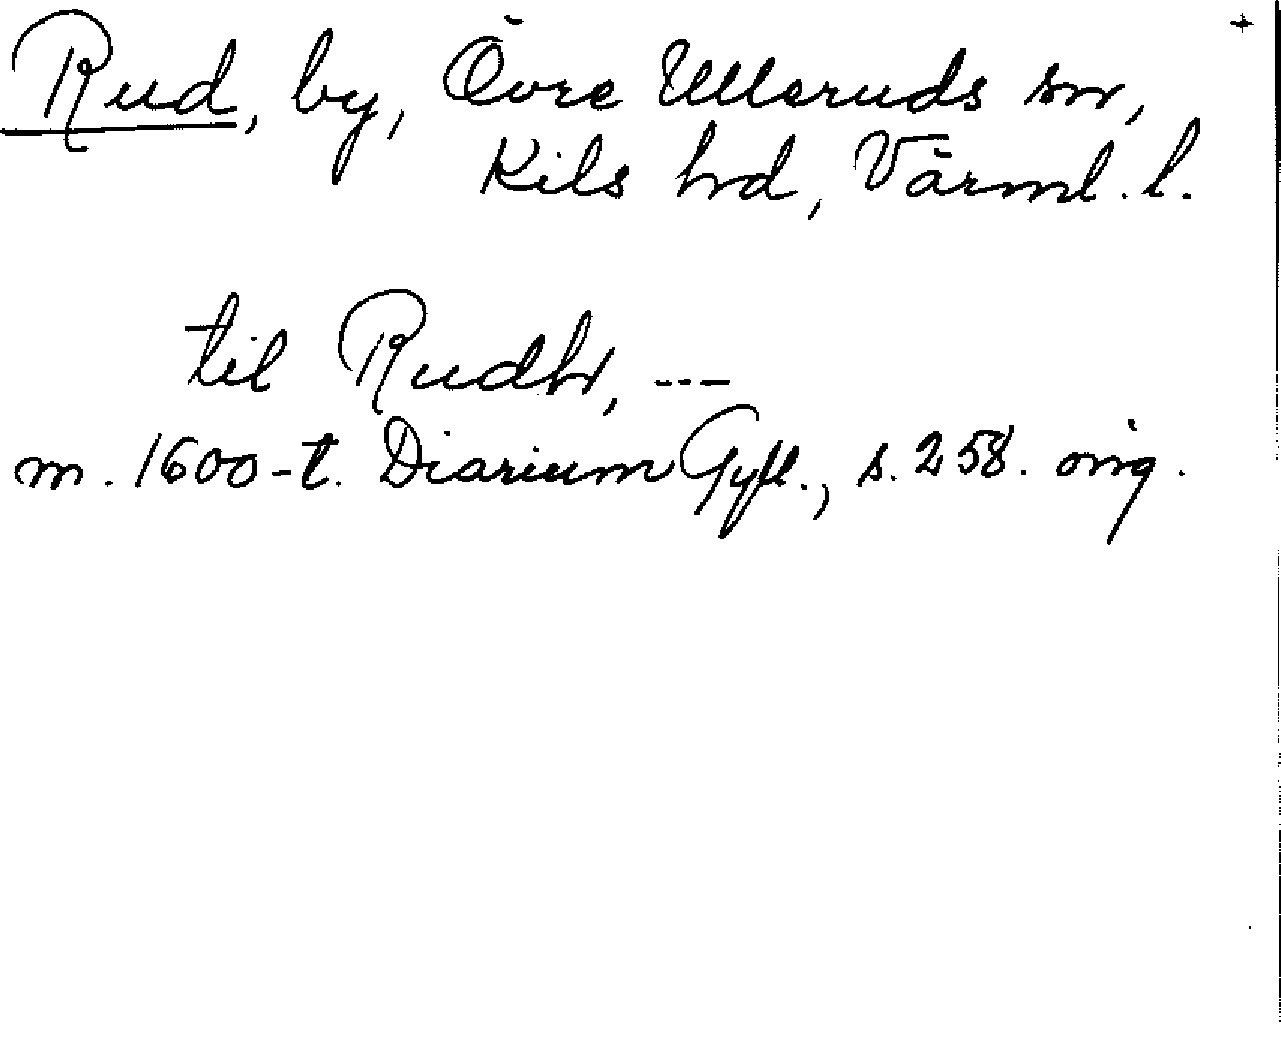 Rud, by, Övre Ulleruds sn,
Kils hd, Värml. l.
til Rudh, ---
m. 1600-t. Diarium Gyll., s. 258. orig.